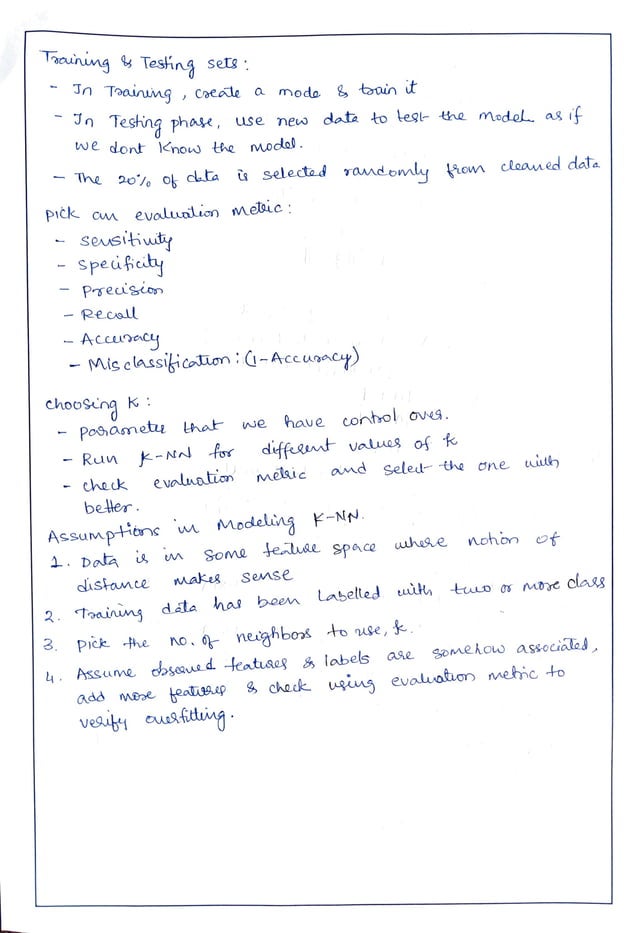 Training & Testing sets:
- In Training, create a mode & train it
- In Testing phase, use new data to test the model as if
we dont know the model.
- The 20% of data is selected randomly from cleaned data
pick an evaluation metric:
- sensitivity
- specificity
- Precision
- Recall
- Accuracy
- Misclassification: (1-Accuracy)
choosing K:
- parameter that we have control over.
- Run K-NN for different values of k
- check evaluation metric and select the one with
better.
Assumptions in Modeling K-NN.
1. Data is in some feature space where notion of
distance makes sense
2. Training data has been Labelled with two or more class
3. pick the no. of neighbors to use, k.
4. Assume observed features & labels are somehow associated,
add more features & check using evaluation metric to
verify overfitting.